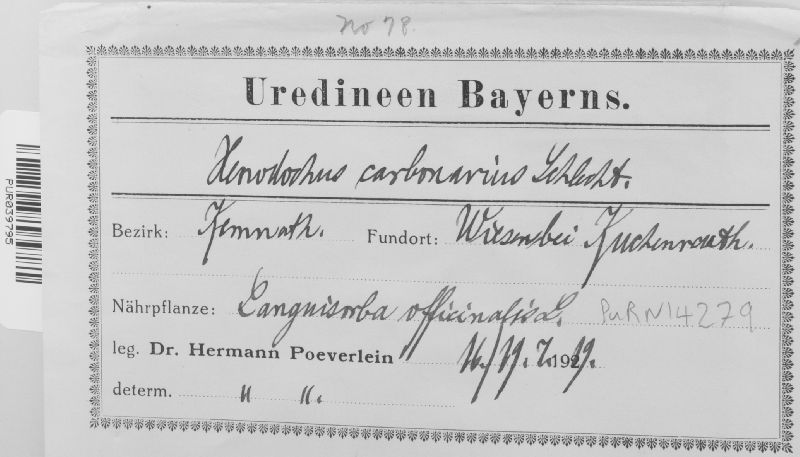 No 78.
Uredineen Bayerns.
Xenodochus carbonarius Schlecht.
Bezirk: Kemnath. Fundort: Wiesen bei Kuchenreuth.
Nährpflanze: Sanguisorba officinalis L. PuRN14279
leg. Dr. Hermann Poeverlein
determ. " ".
PUR039795